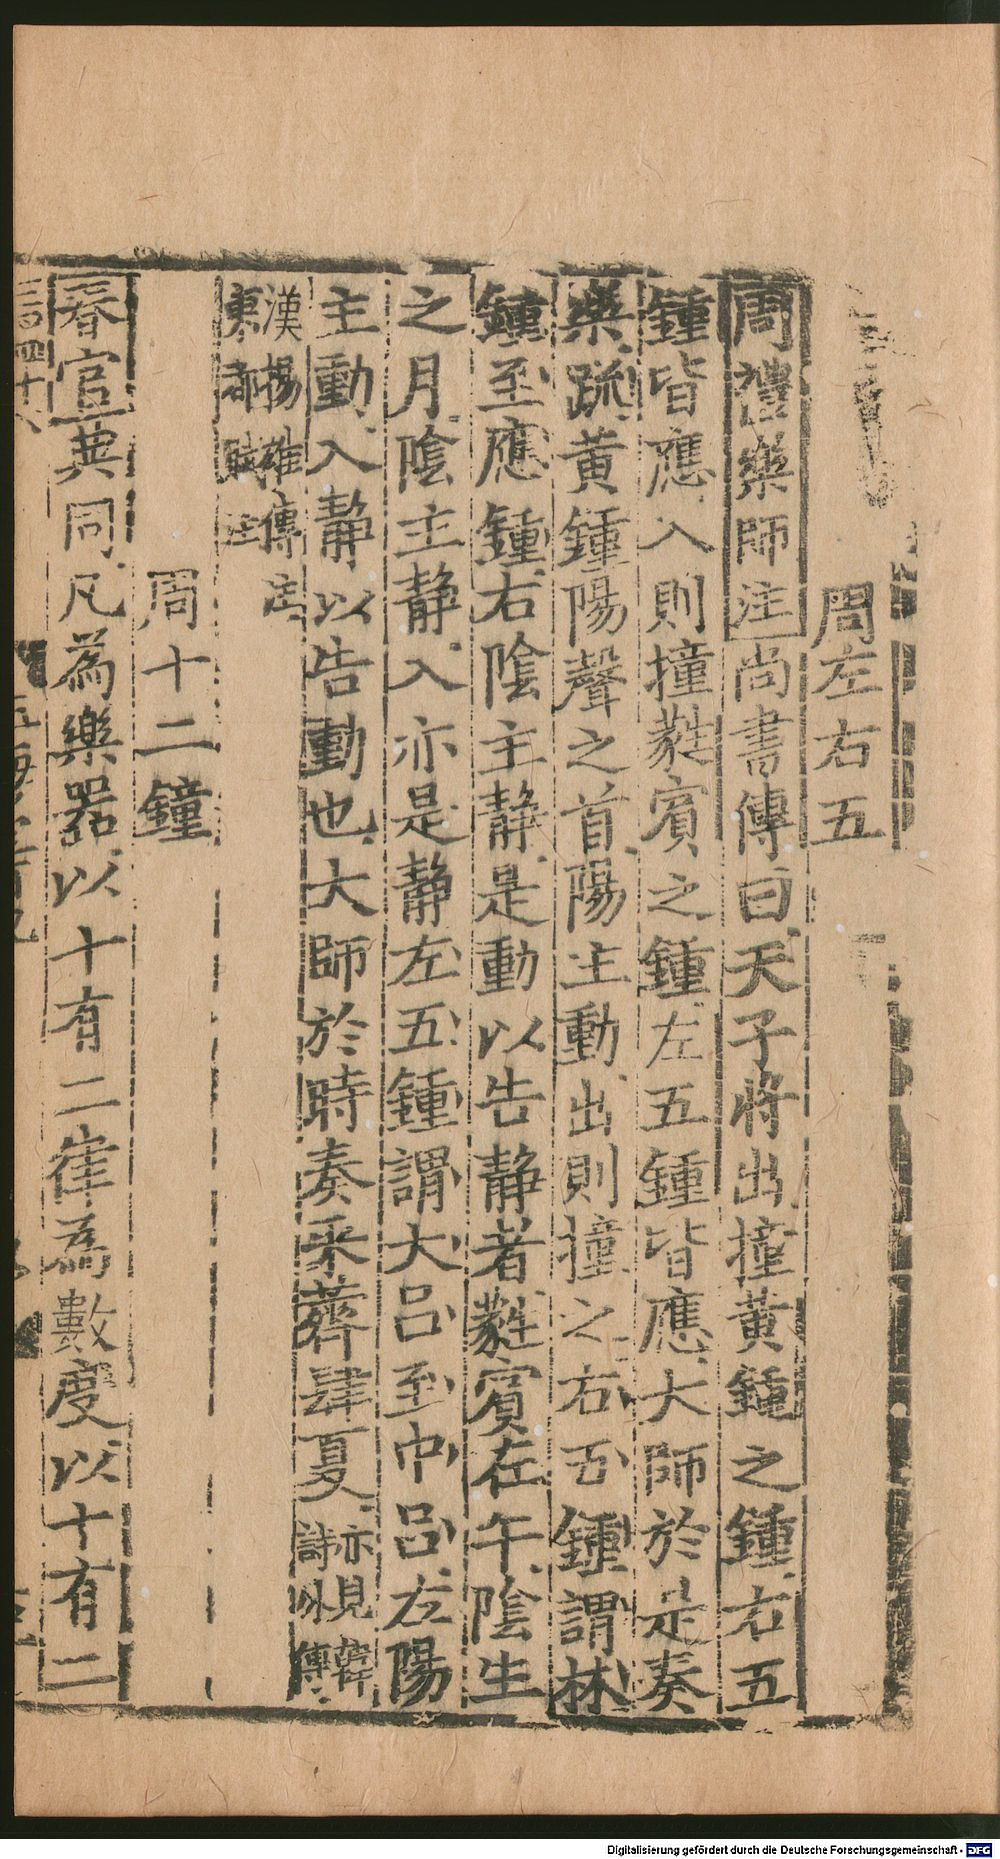 周左右五
周禮樂師注尚書傳曰天子將出撞黃鍾之鍾右五
鍾皆應入則撞蕤賓之鍾左五鍾皆應大師於是奏
樂疏黃鍾陽聲之首陽主動出則撞之右五鍾謂林
鍾至應鍾右陰主静是動以告静者蕤賓在午陰生
之月陰主静入亦是静左五鍾謂大吕至中吕左陽
主動入静以告動也大師於時奏采薺肆夏亦見韓
詩外傳
漢揚雄傳注
東都賦注
周十二鐘
春官典同凡為樂器以十有二律為數度以十有二
Digitalisierung gefördert durch die Deutsche Forschungsgemeinschaft - DFG